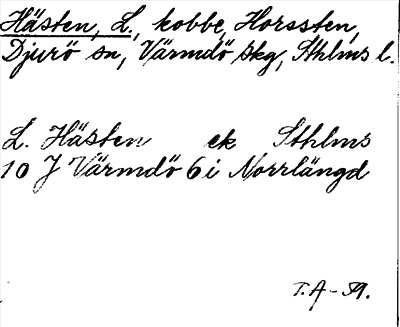 Hästen, L., kobbe, Horssten,
Djurö sn, Värmdö skg, Sthlms l.
L. Hästen ek Sthlms
10 J Värmdö 6 i Norrlängd
T.A-59.